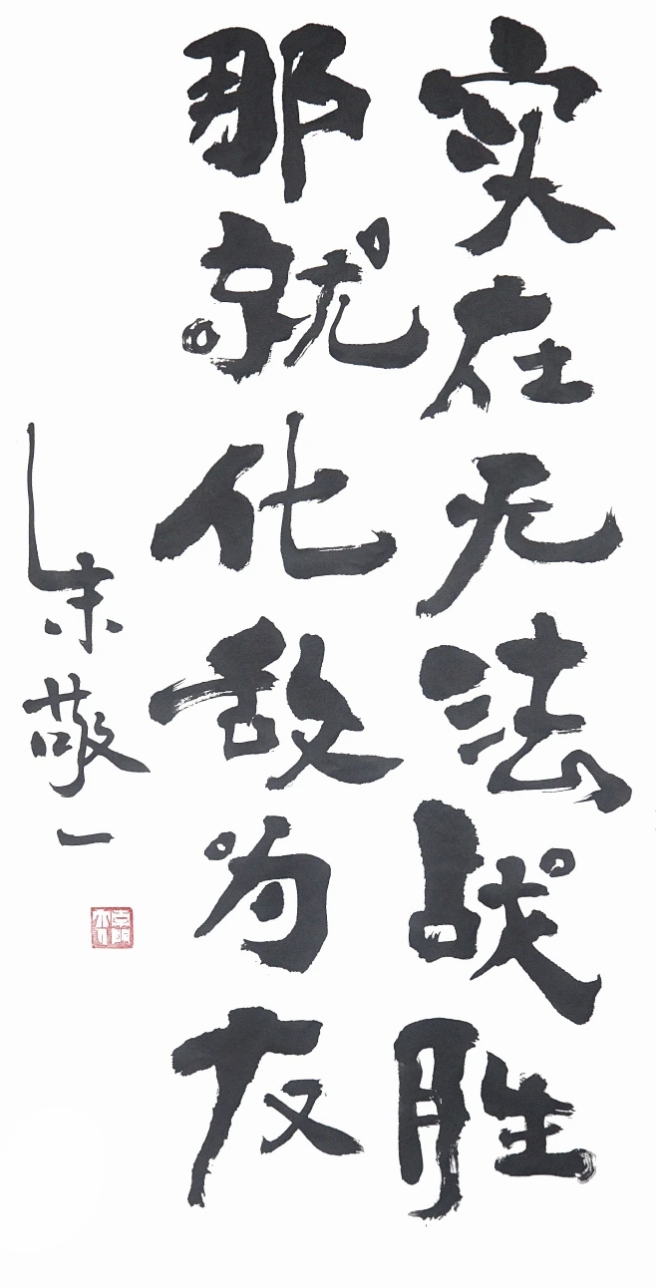 实在无法战胜
那就化敌为友
朱敬一